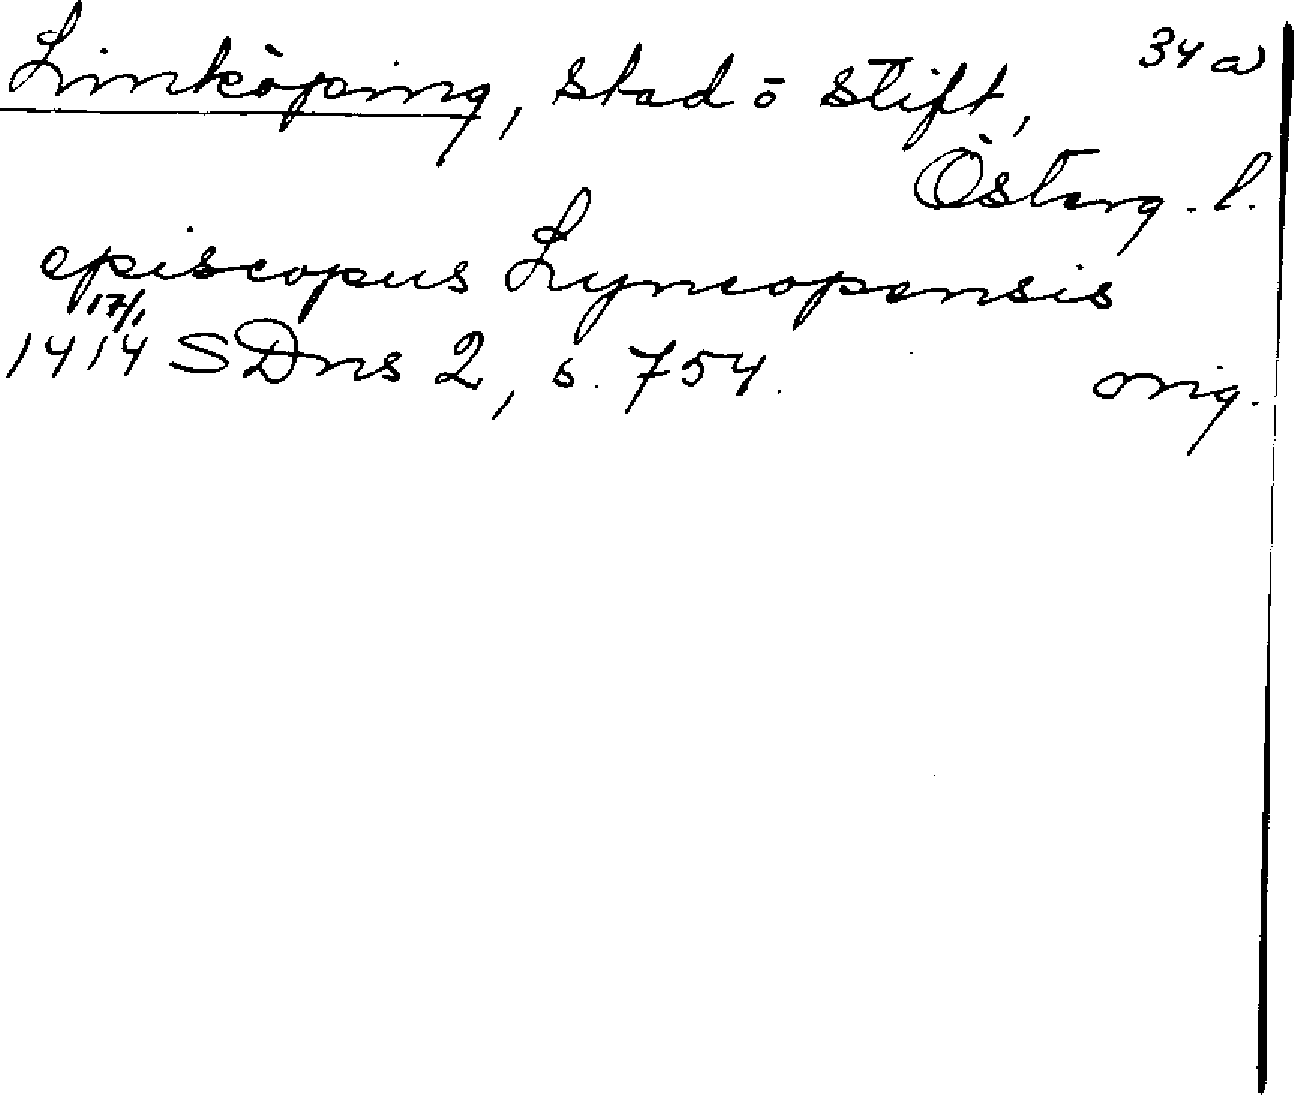 Linköping, stad o stift, 34 a
Österg. l.
episcopus Lyncopensis
17/1
1414 SDns 2, s. 754. orig.